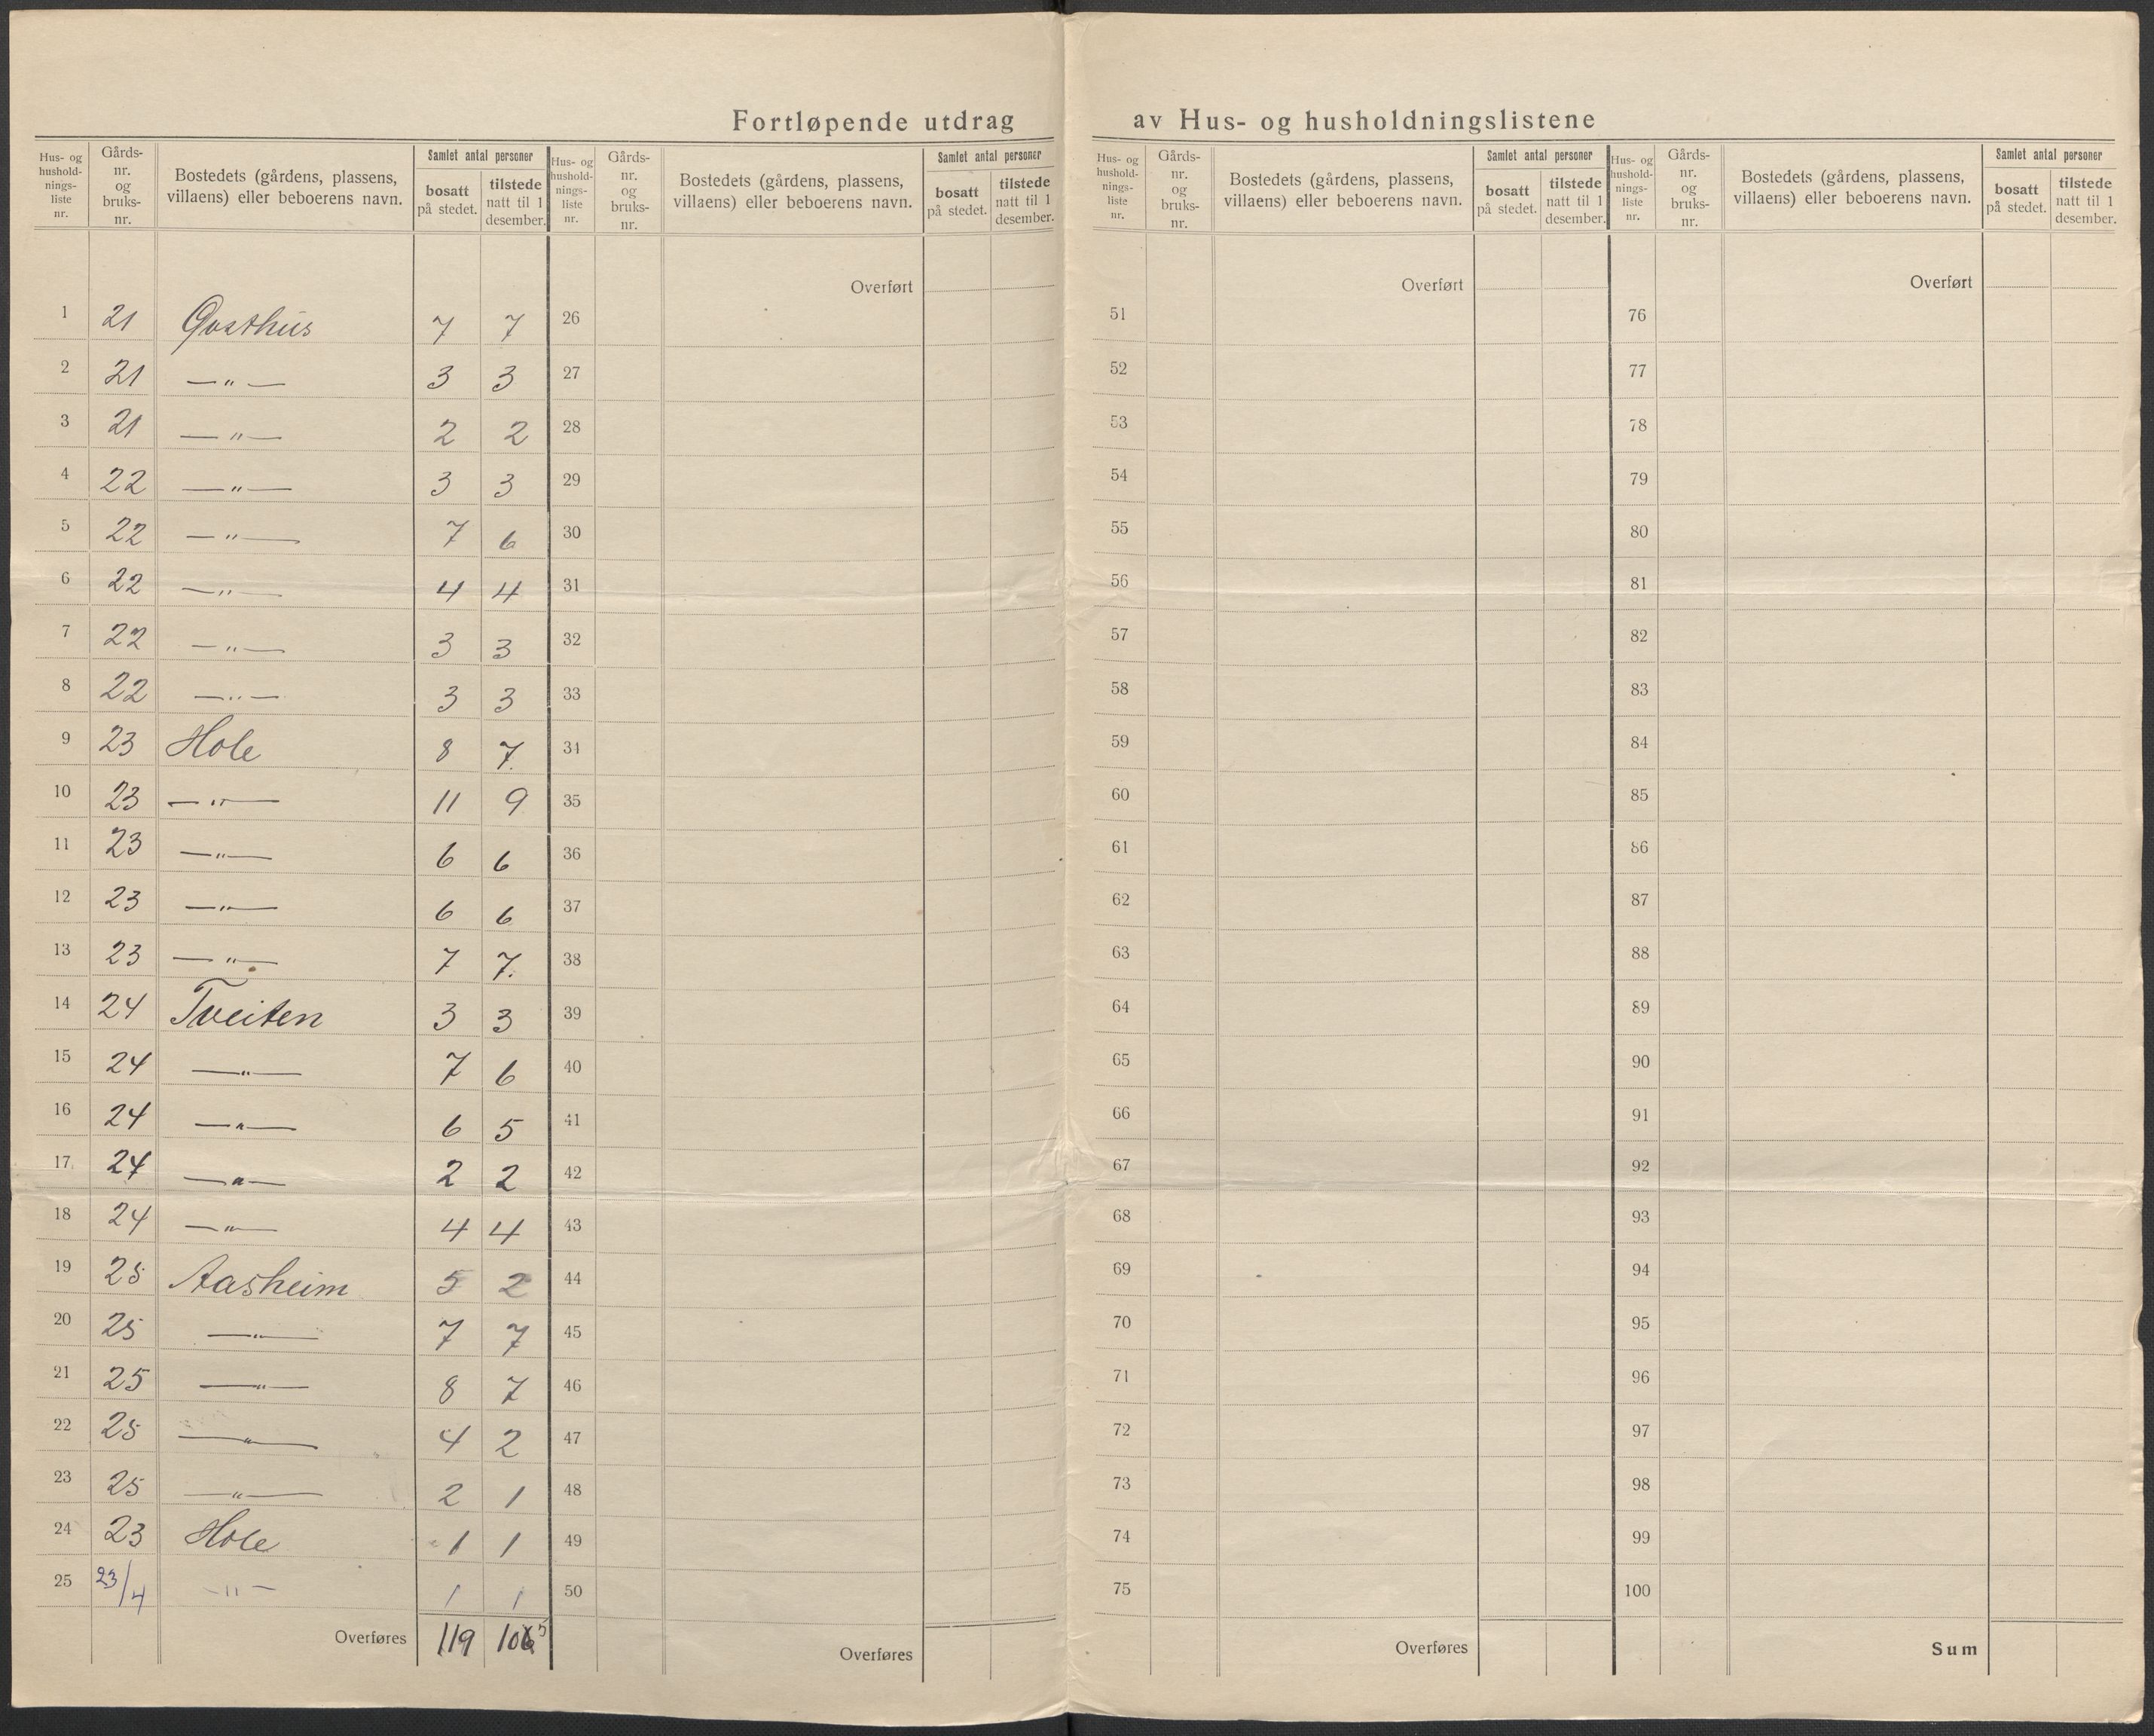 Fortløpende utdrag av Hus- og husholdningslistene
Hus- og hushold- nings- liste nr. | Gårds- nr. og bruks- nr. | Bostedets (gårdens, plassens, villaens) eller beboerens navn. | Samlet antal personer | bosatt på stedet. | tilstede natt til 1 desember.
Hus- og hushold- nings- liste nr. | Gårds- nr. og bruks- nr. | Bostedets (gårdens, plassens, villaens) eller beboerens navn. | Samlet antal personer | bosatt på stedet. | tilstede natt til 1 desember.
Hus- og hushold- nings- liste nr. | Gårds- nr. og bruks- nr. | Bostedets (gårdens, plassens, villaens) eller beboerens navn. | Samlet antal personer | bosatt på stedet. | tilstede natt til 1 desember.
Hus- og hushold- nings- liste nr. | Gårds- nr. og bruks- nr. | Bostedets (gårdens, plassens, villaens) eller beboerens navn. | Samlet antal personer | bosatt på stedet. | tilstede natt til 1 desember.
Overført Overført Overført
1 21 Qvosthus 7 7 26 51 76
2 21 — " — 3 3 27 52 77
3 21 — " — 2 2 28 53 78
4 22 — " — 3 3 29 54 79
5 22 — " — 7 6 30 55 80
6 22 — " — 4 4 31 56 81
7 22 — " — 3 3 32 57 82
8 22 — " — 3 3 33 58 83
9 23 Hole 8 7 34 59 84
10 23 — " — 11 9 35 60 85
11 23 — " — 6 6 36 61 86
12 23 — " — 6 6 37 62 87
13 23 — " — 7 7. 38 63 88
14 24 Tveiten 3 3 39 64 89
15 24 — " — 7 6 40 65 90
16 24 — " — 6 5 41 66 91
17 24 — " — 2 2 42 67 92
18 24 — " — 4 4 43 68 93
19 25 Aasheim 5 2 44 69 94
20 25 — " — 7 7 45 70 95
21 25 — " — 8 7 46 71 96
22 25 — " — 4 2 47 72 97
23 25 — " — 2 1 48 73 98
24 23 Hole 1 1 49 74 99
25 23/4 — " — 1 1 50 75 100
Overføres 119 106 5 Overføres Overføres Sum